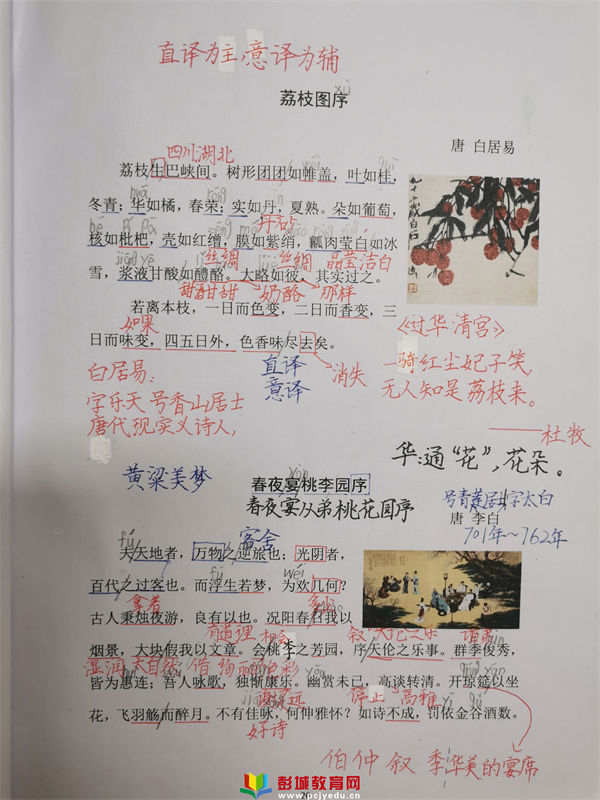 直译为主,意译为辅
荔枝图序
唐 白居易
四川湖北
荔枝生巴峡间。树形团团如帷盖,叶如桂,
冬青;华如橘,春荣;实如丹,夏熟。朵如葡萄,
核如枇杷,壳如红缯,膜如紫绡,瓤肉莹白如冰
丝绸 丝绸 晶莹洁白
雪,浆液甘酸如醴酪。大略如彼,其实过之。
甜酒甘甜 奶酪 那样
若离本枝,一日而色变,二日而香变,三
如果
日而味变,四五日外,色香味尽去矣。
消失
直译
意译
《过华清宫》
一骑红尘妃子笑,
无人知是荔枝来。
——杜牧
白居易:
字乐天 号香山居士
唐代现实义诗人,
华:通“花”,花朵。
黄梁美梦
春夜宴桃李园序
春夜宴从弟桃花园序
号青莲居士字太白
唐 李白
701年~762年
客舍
夫天地者,万物之逆旅也;光阴者,
百代之过客也。而浮生若梦,为欢几何?
拿着 多少
古人秉烛夜游,良有以也。况阳春召我以
有道理 相会 叙 天伦之乐
烟景,大块假我以文章。会桃李之芳园,序天伦之乐事。群季俊秀,
湿润 大自然 借 绚丽的色彩
皆为惠连;吾人咏歌,独惭康乐。幽赏未已,高谈转清。开琼筵以坐
谢灵远 停止 高雅
花,飞羽觞而醉月。不有佳咏,何伸雅怀?如诗不成,罚依金谷酒数。
好诗
伯 仲 叙 季 华美的宴席
彭城教育网
www.pcjyedu.cn